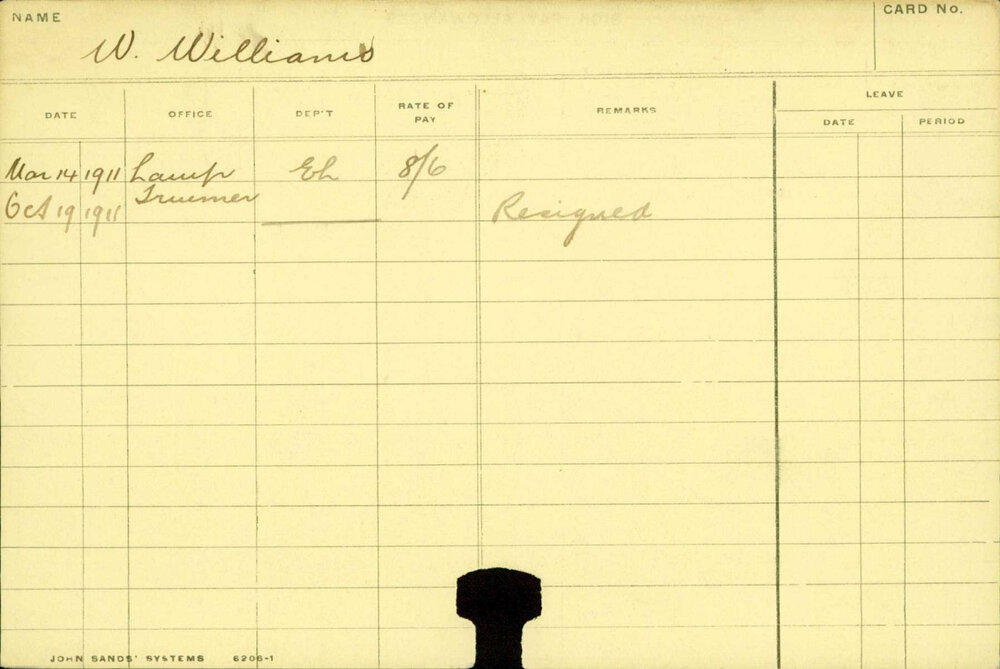 NAME
W. Williams
CARD No.
DATE OFFICE DEP'T RATE OF PAY REMARKS LEAVE
DATE PERIOD
Mar 14 1911 Lamp El 8/6
Trimmer
Oct 19 1911 Resigned
JOHN SANDS' SYSTEMS 6206-1